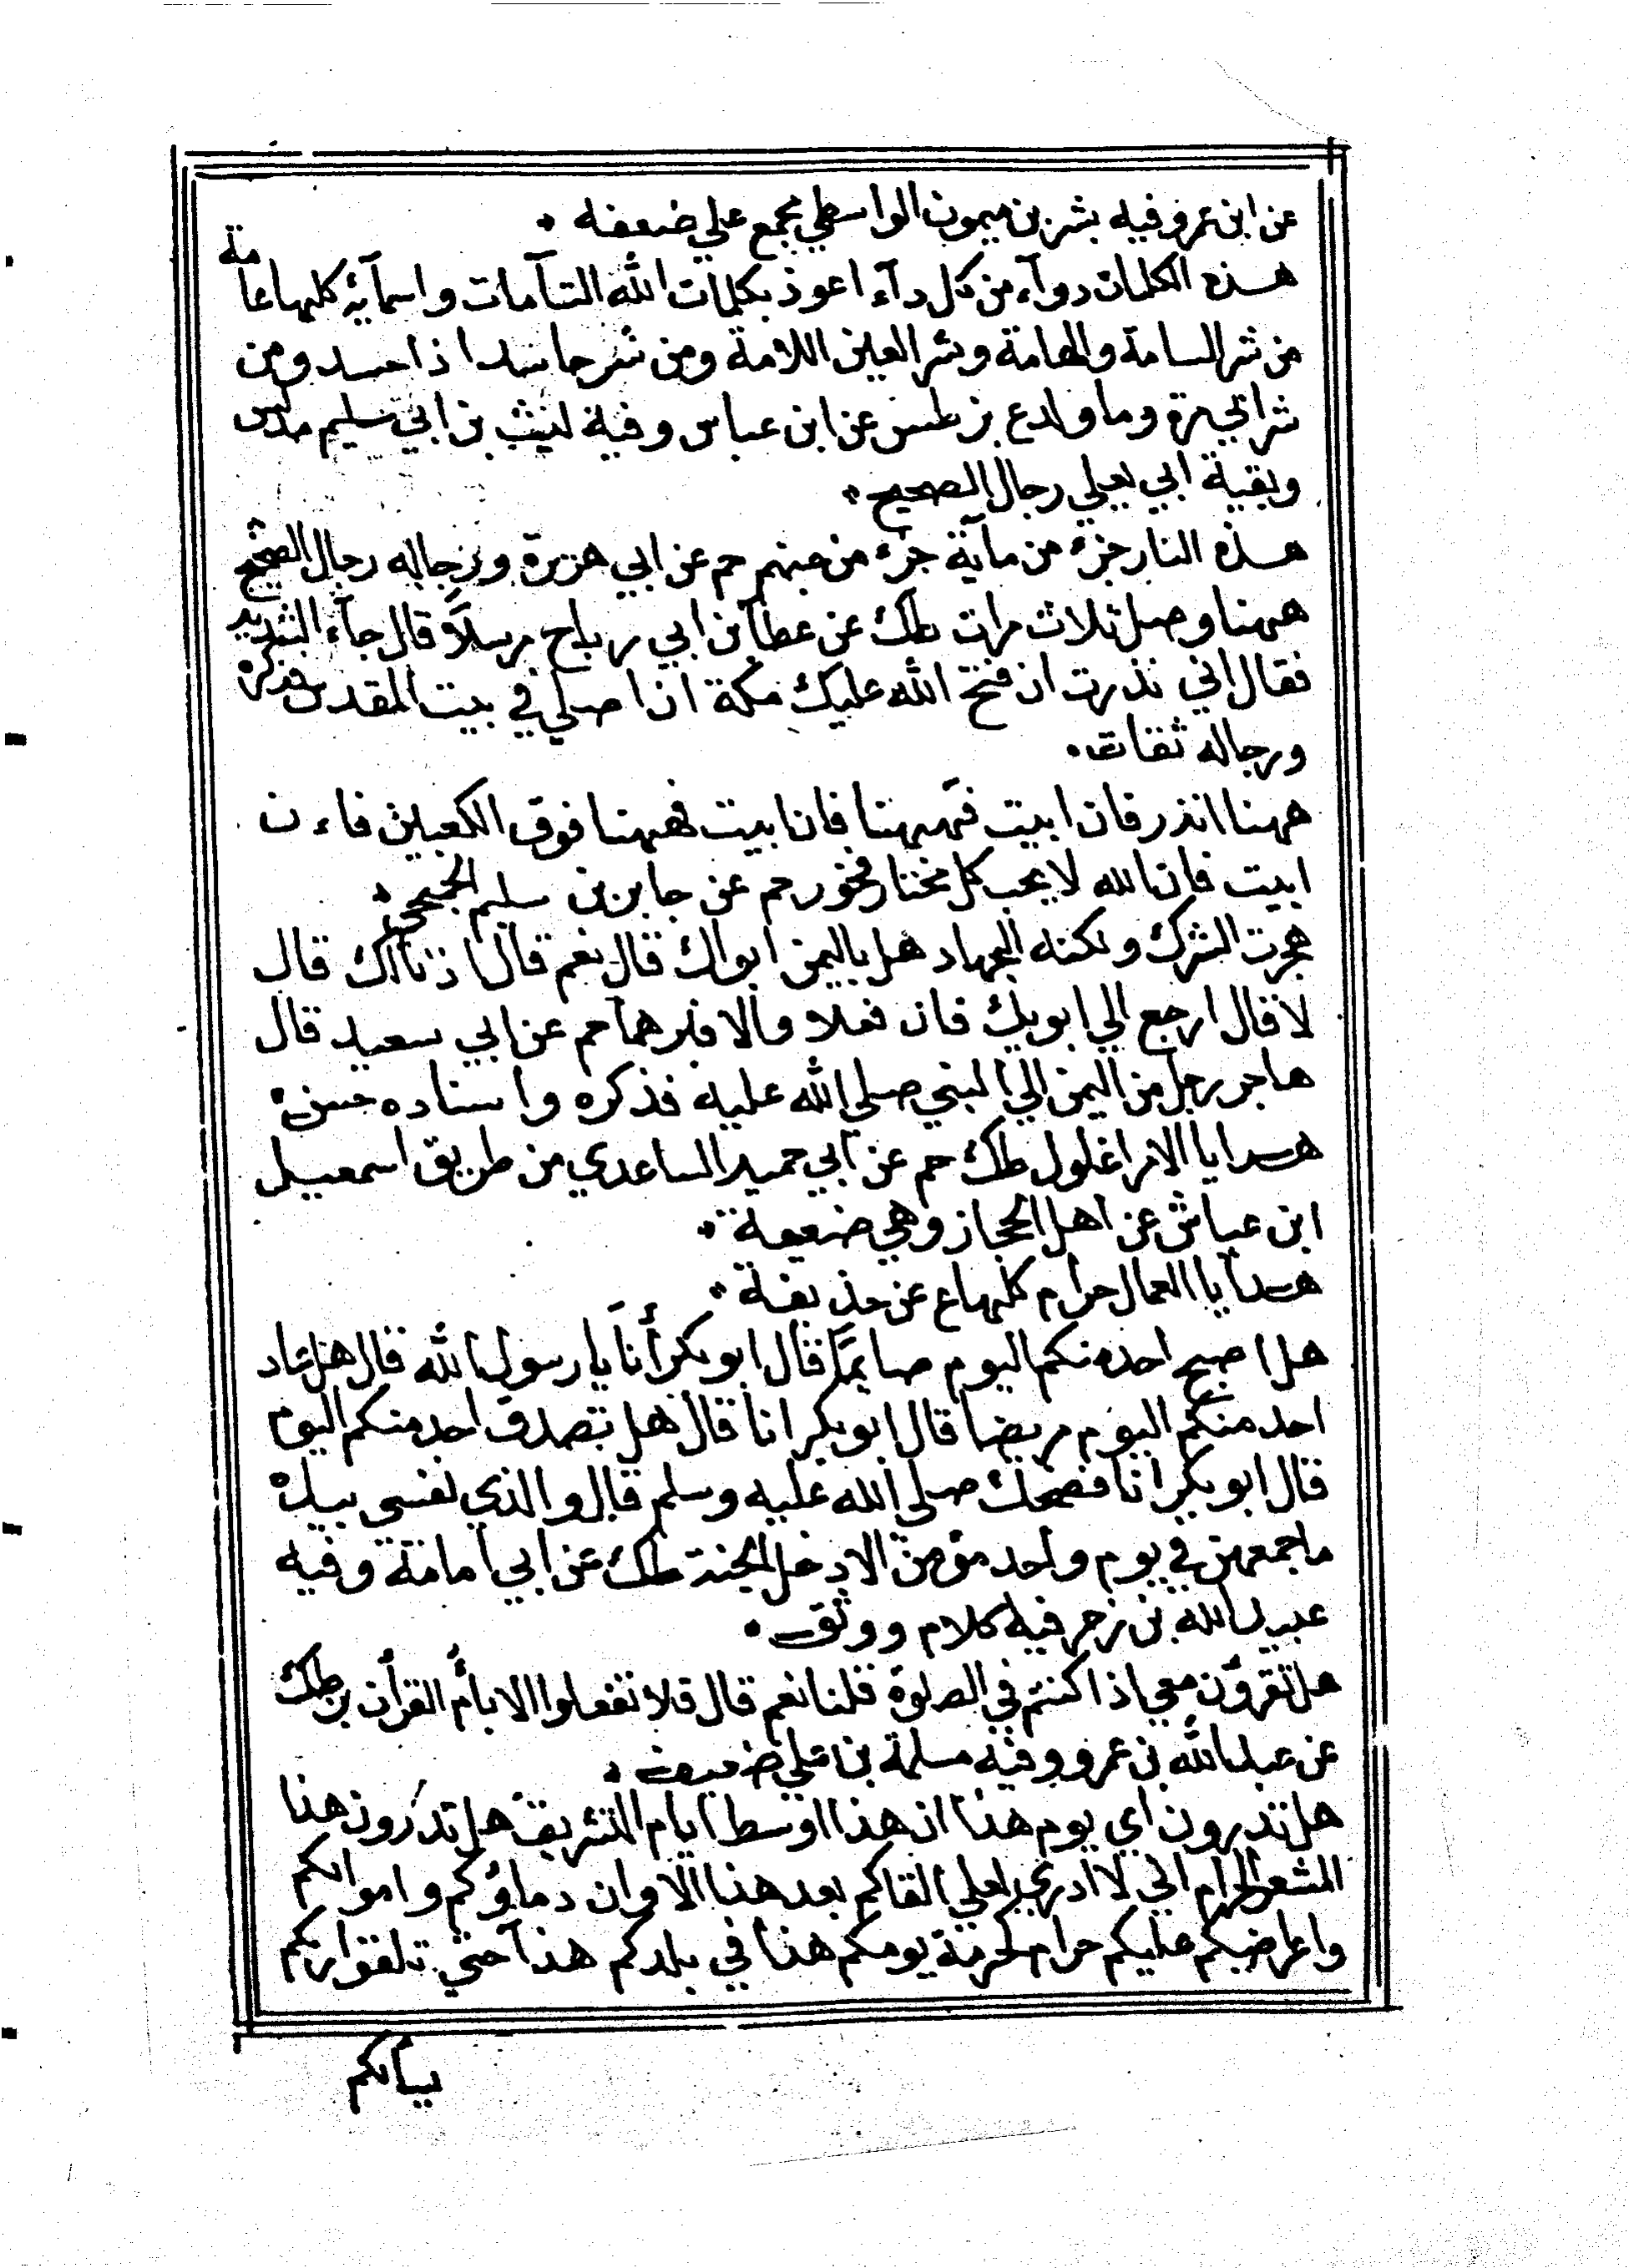 عن ابن عمرو فيه بشر بن ميمون الواسطي مجمع علي ضعفه
هذه الكلمات دوآء من كل دآء اعوذ بكلمات الله التآمات واسمآيه كلها عامة
من شر السامة والهامة وشر العين اللامة ومن شر حاسد اذا حسد ومن
شر ابي مرة وما ولد ع بز طس عن ابن عباس وفيه ليث بن ابي سليم مدلس
وبقية ابي يعلي رجال الصحيح
هذه النار جزء من مآية جزء من جهنم حم عن ابي هريرة ورجاله رجال الصحيح
ههنا وصل ثلاث مرات طك عن عطآ بن ابي رباح مرسلاً قال جآء الشريد
فقال اني نذرت ان فتح الله عليك مكة ان اصلي في بيت المقدس فذكره
ورجاله ثقات
ههنا انذر فان ابيت فههنا فان ابيت فههنا فوق الكعبين فاءن
ابيت فان الله لا يحب كل مختار فخور حم عن جابر بن سليم الجهيمي
هجرت الشرك ولكنه الجهاد هل باليمن ابواك قال نعم قال اذنا لك قال
لا قال ارجع الي ابويك فان فعلا والا فبرهما حم عن ابي سعيد قال
هاجر رجل من اليمن الي النبي صلي الله عليه فذكره واسناده حسن
هدايا الامرا غلول طك حم عن ابي حميد الساعدي من طريق اسمعيل
ابن عياش عن اهل الحجاز وهي ضعيفة
هدايا العمال حرام كلها ع عن حذيفة
هل اصبح احد منكم اليوم صايمًا قال ابو بكر أنا يا رسول الله قال هل عاد
احد منكم اليوم مريضا قال ابو بكر انا قال هل تصدق احد منكم اليوم
قال ابو بكر انا فضحك صلى الله عليه وسلم قال والذي نفسي بيده
ما جمعهن في يوم واحد مؤمن الا دخل الجنة طك عن ابي امامة وفيه
عبيد الله بن زحر فيه كلام ووثق
هل تقرؤن معي اذا كنتم في الصلوة قلنا نعم قال فلا تفعلوا الا بأم القرأن بز طك
عن عبد الله بن عمرو وفيه مسلمة بن علي ضعيف
هل تدرون اي يوم هذا ان هذا اوسط ايام التشريق هل تدرون هذا
المشعر الحرام اني لا ادري لعلي القاكم بعد هذا الاوان دماؤكم واموالكم
واعراضكم عليكم حرام كحرمة يومكم هذا في بلدكم هذا حتي تلقوا ربكم
يسألكم